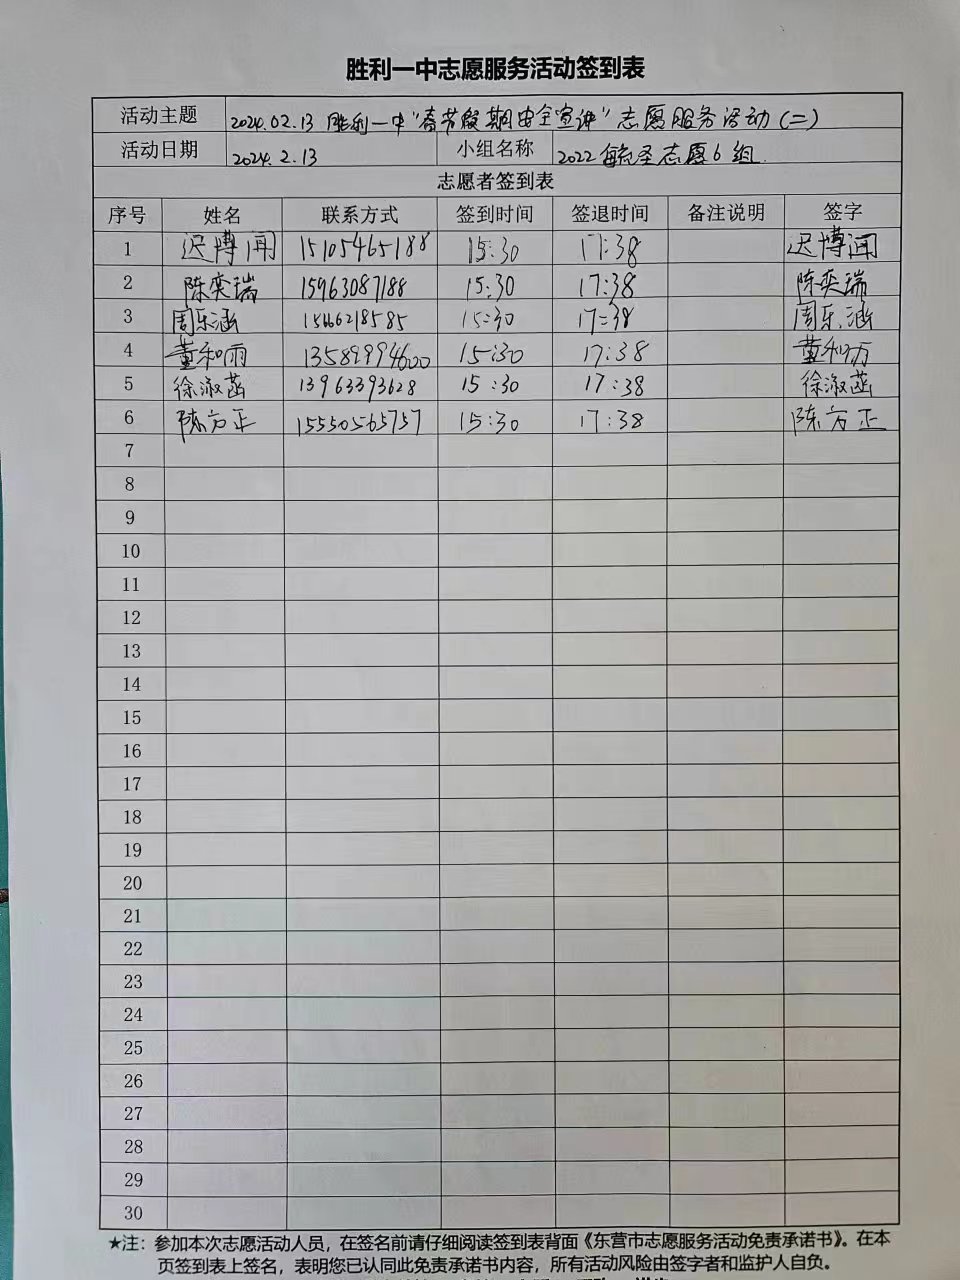 胜利一中志愿服务活动签到表
活动主题 2024.02.13 胜利一中"春节假期安全宣讲"志愿服务活动(二)
活动日期 2024.2.13 小组名称 2022 志愿6组
志愿者签到表
序号 姓名 联系方式 签到时间 签退时间 备注说明 签字
1 迟博闻 15105465188 15:30 17:38 迟博闻
2 陈奕瑞 15963087188 15:30 17:38 陈奕瑞
3 周乐涵 15666218585 15:30 17:38 周乐涵
4 董和雨 13589994600 15:30 17:38 董和雨
5 徐淑菡 13963393628 15:30 17:38 徐淑菡
6 陈方正 15550565757 15:30 17:38 陈方正
7
8
9
10
11
12
13
14
15
16
17
18
19
20
21
22
23
24
25
26
27
28
29
30
★注：参加本次志愿活动人员，在签名前请仔细阅读签到表背面《东营市志愿服务活动免责承诺书》。在本
页签到表上签名，表明您已认同此免责承诺书内容，所有活动风险由签字者和监护人自负。